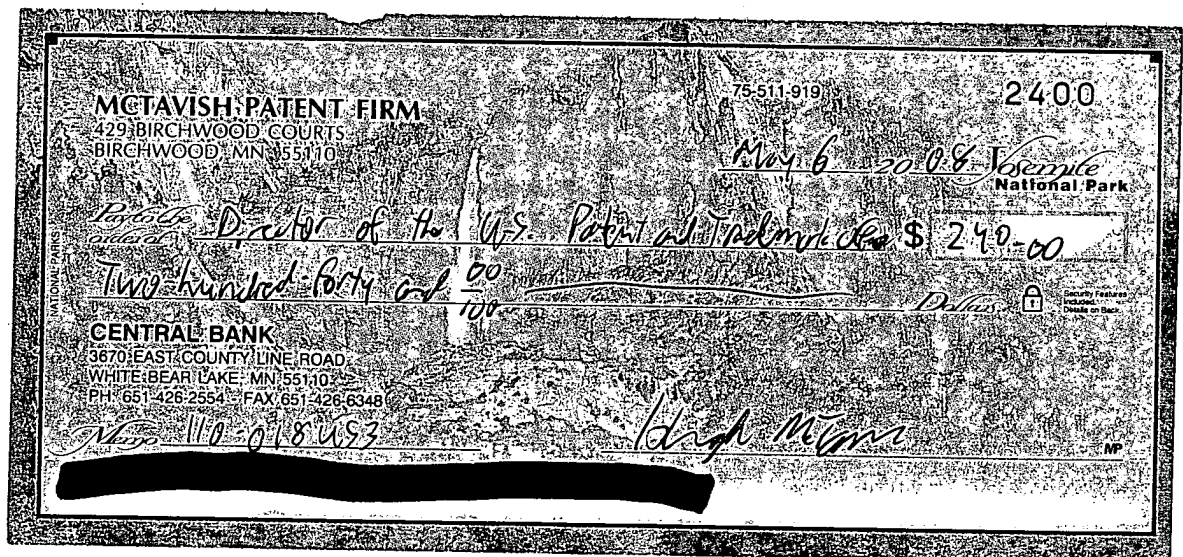 MCTAVISH PATENT FIRM
429 BIRCHWOOD COURTS
BIRCHWOOD, MN 55110
75-511-919
2400
May 6 20 08
Yosemite
National Park
Pay to the
order of Director of the U.S. Patent and Trademark Office $ 240.00
Two hundred forty and 00/100 Dollars
Security Features
Included.
Details on Back.
CENTRAL BANK
3670 EAST COUNTY LINE ROAD
WHITE BEAR LAKE, MN 55110
PH. 651-426-2554 - FAX 651-426-6348
Memo 110-018US3
Hugh McTavish
MP